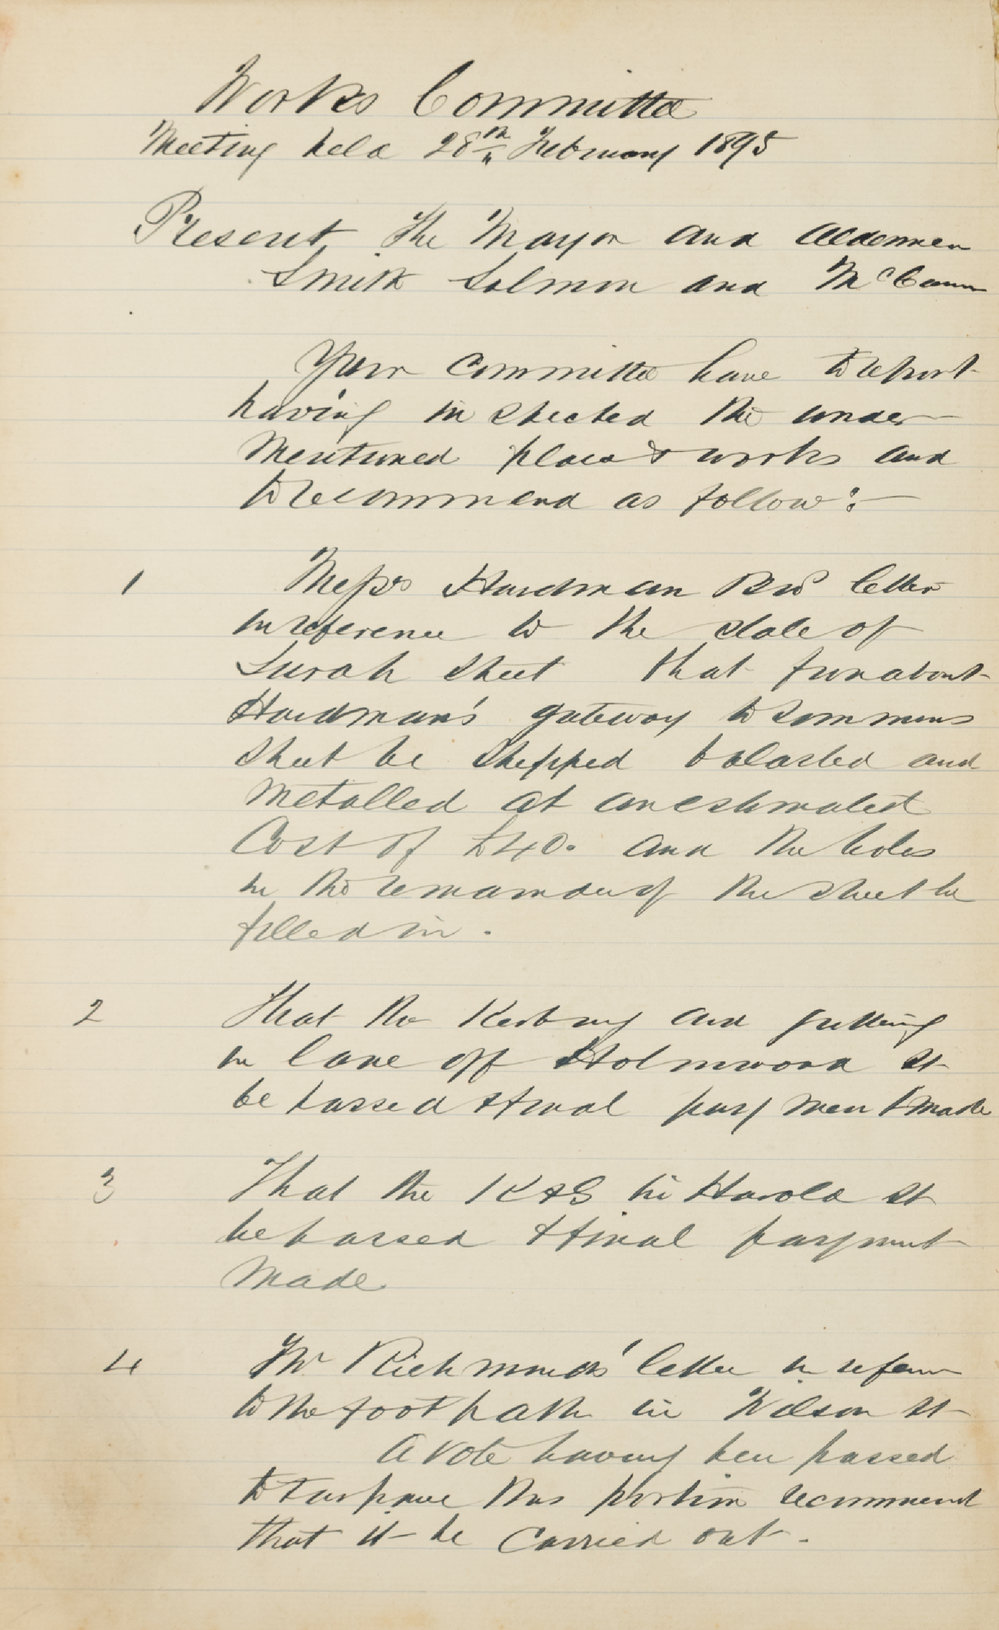 Works Committee
Meeting held 28th February 1895
Present, The Mayor and Aldermen
Smith Salmon and McCann
Your Committee have to report
having inspected the under
mentioned places & works and
to recommend as follow:—
1 Messrs Hardman Bros letter
in reference to the state of
Sarah Street that from about
Hardman's gateway to Simmons
Street be shipped balasted and
metalled at an estimated
Cost of £40. and the holes
in the remainder of the street be
filled in.
2 That the Kerbing and guttering
in lane off Holmwood St
be passed & final payment made
3 That the K & G in Harold St
be passed & final payment
made
4 Mr Richmonds' letter in reference
to the footpath in Wilson St
A vote having been passed
to tarpave this portion recommend
that it be carried out.